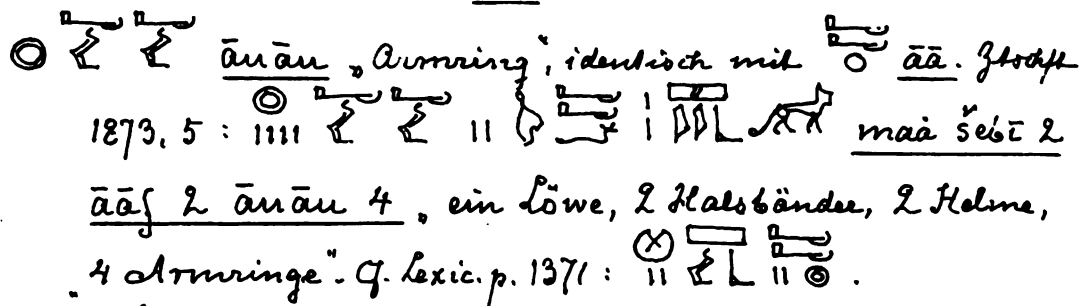 āuāu „Armring", identisch mit āā. Ztschft
1873, 5 : maȧ šebī 2
āāf 2 āuāu 4 „ ein Löwe, 2 Halsbänder, 2 Helme,
4 Armringe". Cf. Lexic. p. 1371 : .